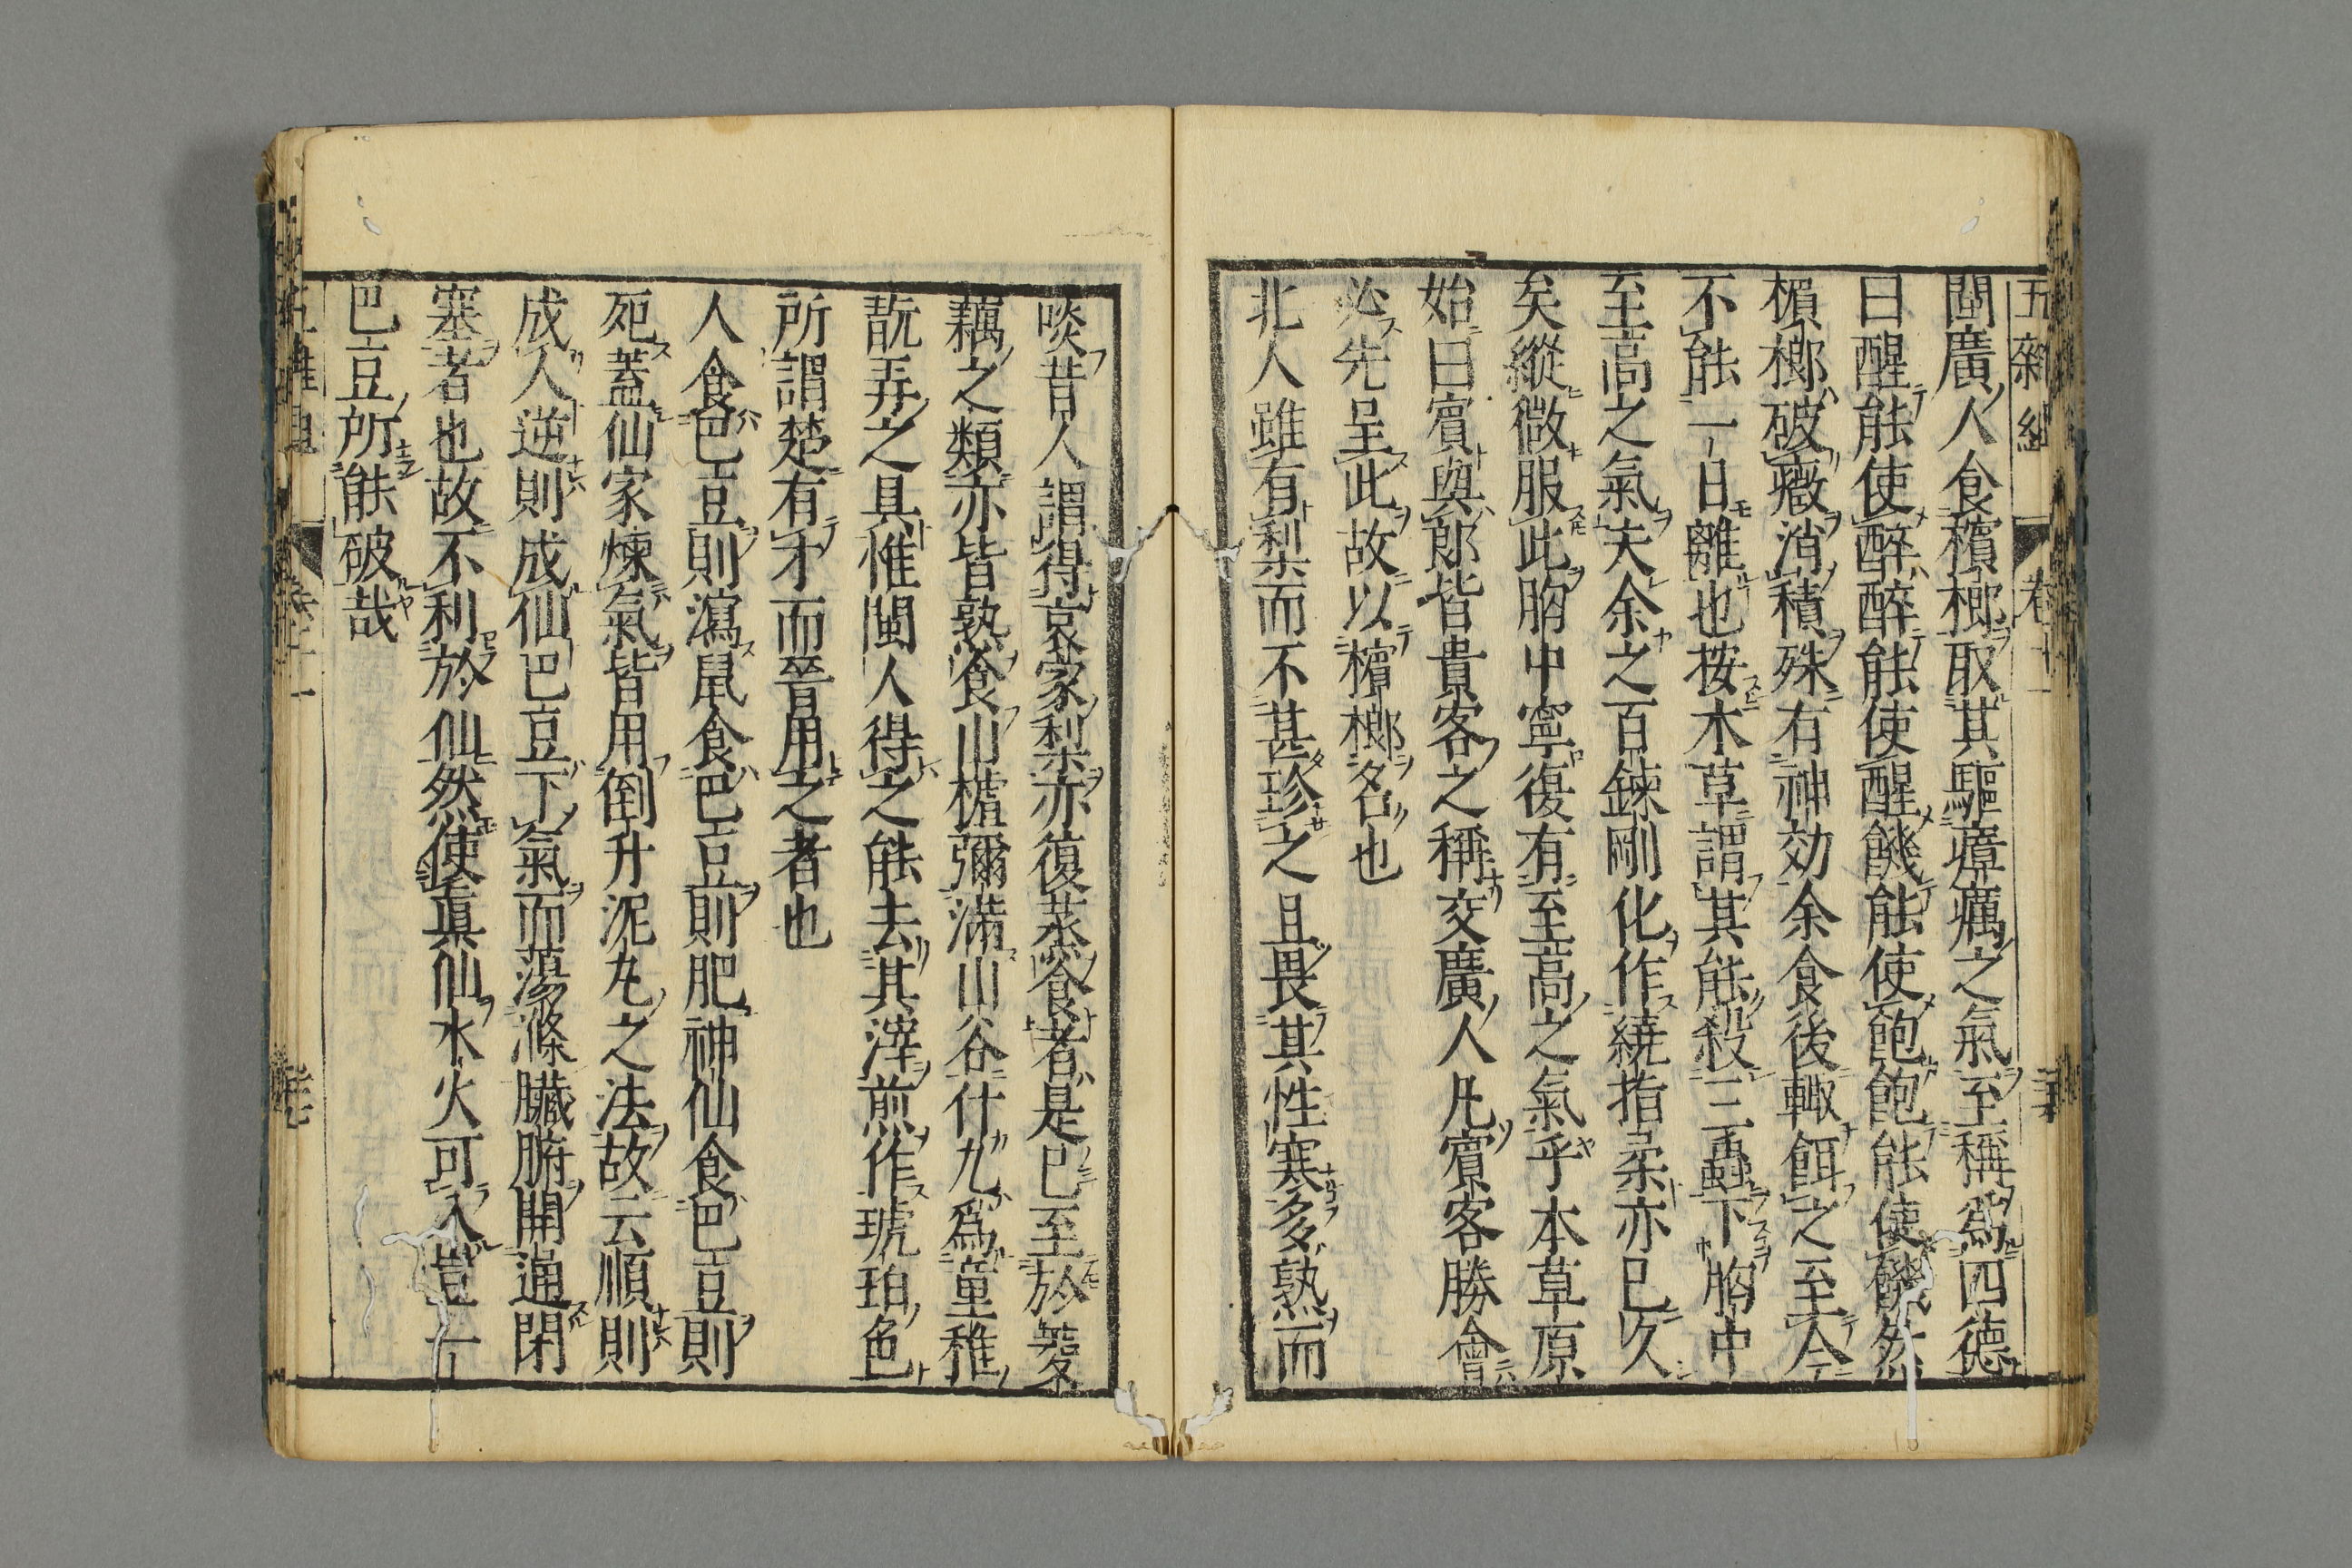 五雜組 卷十一
閩廣人食檳榔取其驅瘴癘之氣至稱爲四德
曰醒能使醉醉能使醒饑能使飽飽能使饑然
檳榔破癥消積殊有神効余食後輙餌之至今
不能一日離也按木草謂其能殺三蟲下胷中
至高之氣夫余之百鍊剛化作繞指柔亦已久
矣縱微服此胷中寧復有至高之氣乎本草原
始曰賓與郎皆貴客之稱交廣人凡賓客勝會
必先呈此故以檳榔名也
北人雖有梨而不甚珍之且畏其性寒多熟而
啖昔人謂得哀家梨亦復蒸食者是已至於菱
藕之類亦皆熟食山楂彌滿山谷什九爲童稚
翫弄之具惟閩人得之能去其滓煎作琥珀色
所謂楚有才而晉用之者也
人食巴豆則瀉鼠食巴豆則肥神仙食巴豆則
死蓋仙家煉氣皆用倒升泥丸之法故云順則
成人逆則成仙巴豆下氣而蕩滌臟腑開通閉
塞者也故不利於仙然使眞仙水火可入豈一
巴豆所能破哉